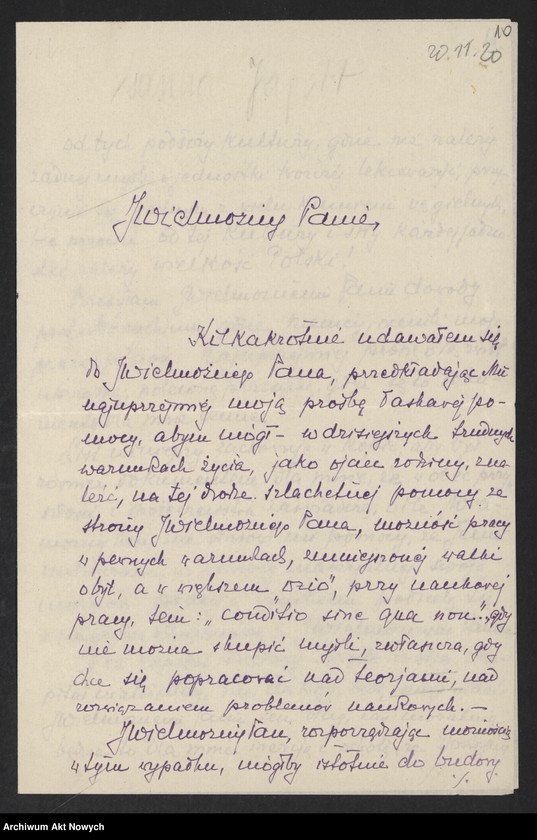 10
20.11.20
JWielmożny Panie,
Kilkakrotnie udawałem się
do JWielmożnego Pana, przedkładając Mu
najuprzejmiej moją prośbę łaskawej po-
mocy, abym mógł – w dzisiejszych trudnych
warunkach życia, jako ojciec rodziny, zna-
leźć, na tej drodze szlachetnej pomocy ze
strony JWielmożnego Pana, możność pracy
w pewnych warunkach, zmniejszonej walki
o byt, a w większem przy naukowej
pracy, tem: „conditio sine qua non”..., gdy
nie można skupić myśli, zwłaszcza, gdy
chce się popracować nad teorjami, nad
rozwiązaniem problemów naukowych. –
JWielmożny Pan, rozporządzając możnością
w tym wypadku, mógłby istotnie do budowy
./.
Archiwum Akt Nowych